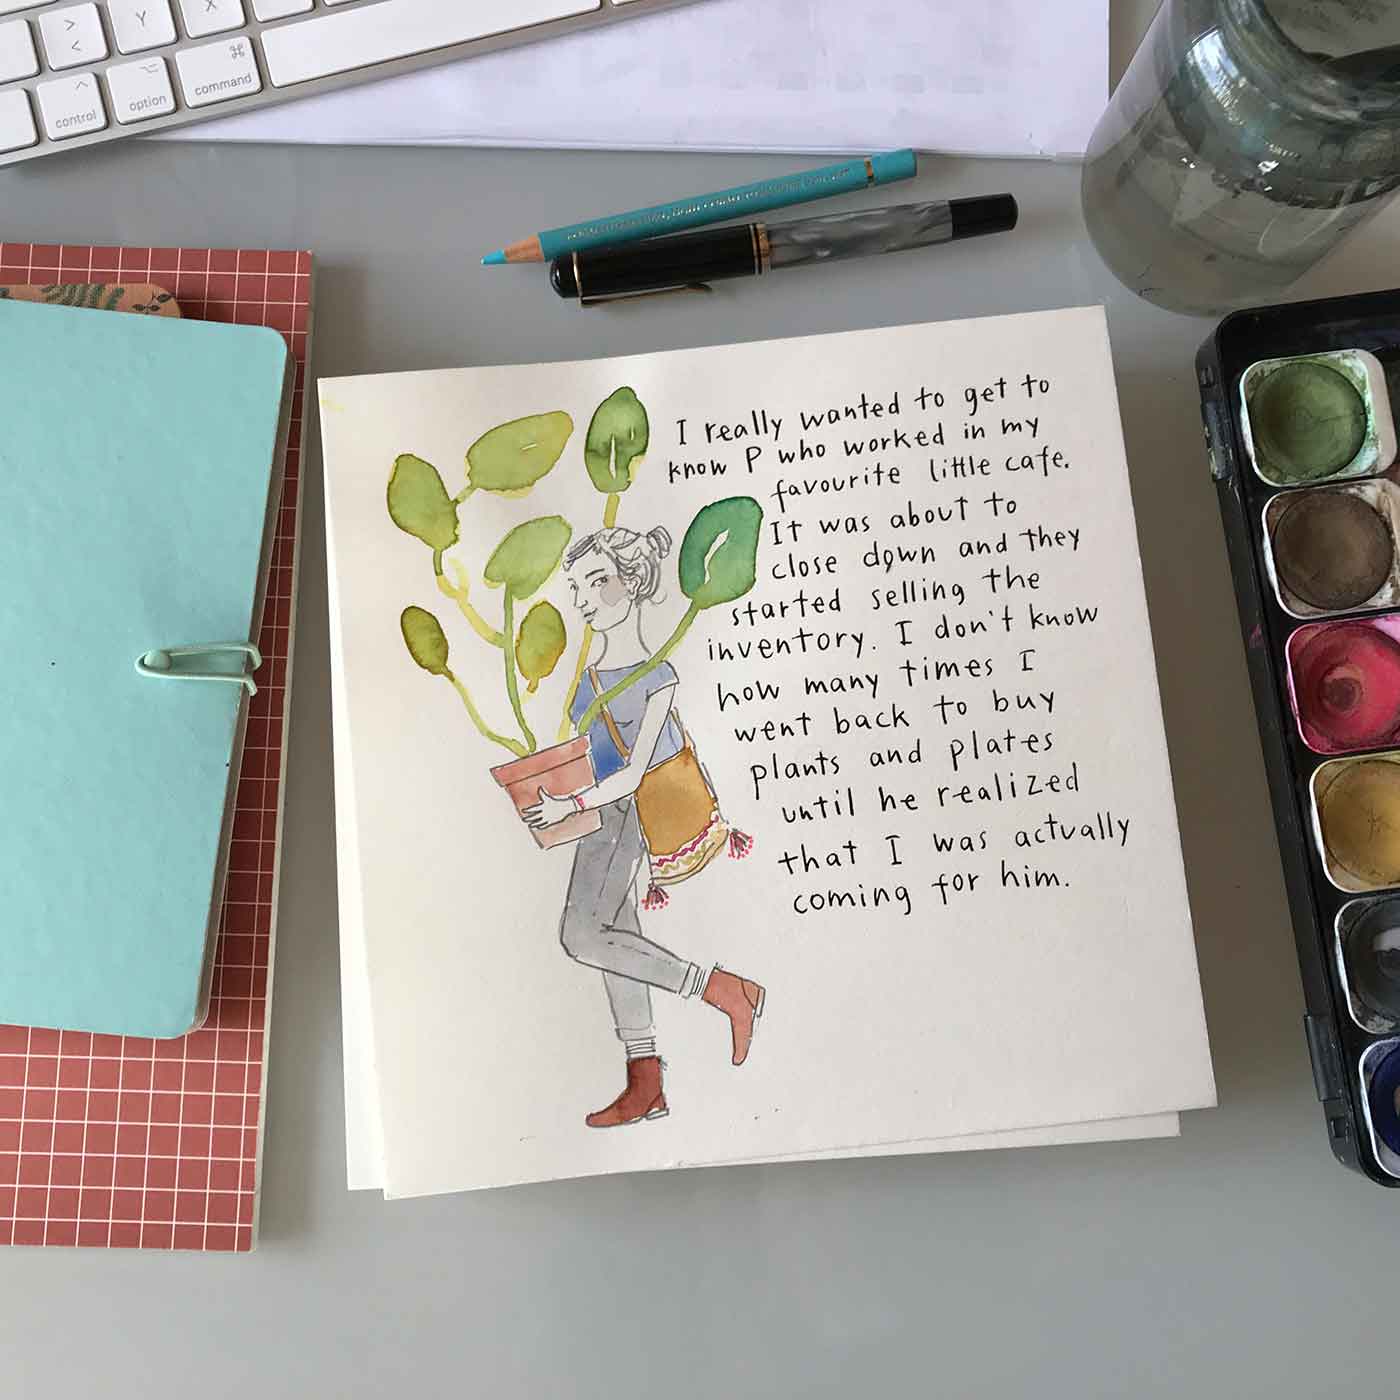 >
<
Y
X
^
control
⌥
option
⌘
command
I really wanted to get to
know P who worked in my
favourite little cafe.
It was about to
close down and they
started selling the
inventory. I don't know
how many times I
went back to buy
plants and plates
until he realized
that I was actually
coming for him.